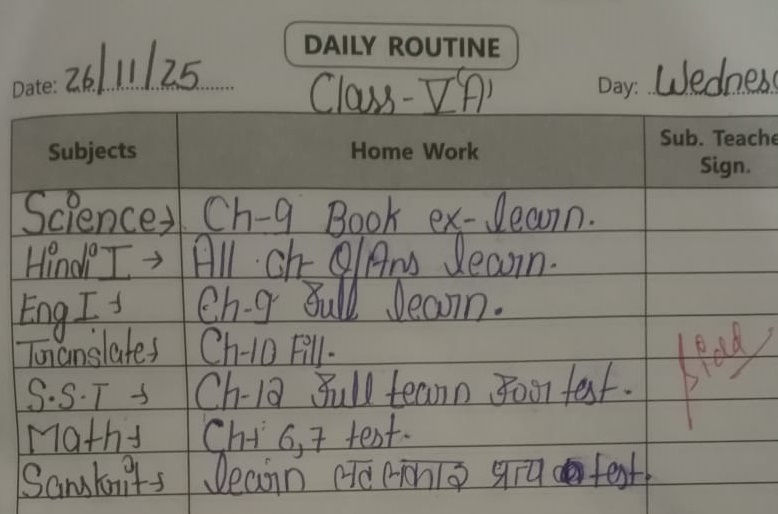 DAILY ROUTINE
Date: 26/11/25 Class-V 'A' Day: Wednesd
Subjects Home Work Sub. Teache Sign.
Science→ Ch-9 Book ex- learn.
Hindi I → All ch Q/Ans learn.
Eng I → Ch-9 Full learn.
Translate→ Ch-10 Fill.
S.S.T → Ch-12 Full learn For test.
Math→ Ch+ 6,7 test.
Sanskrit→ learn test.